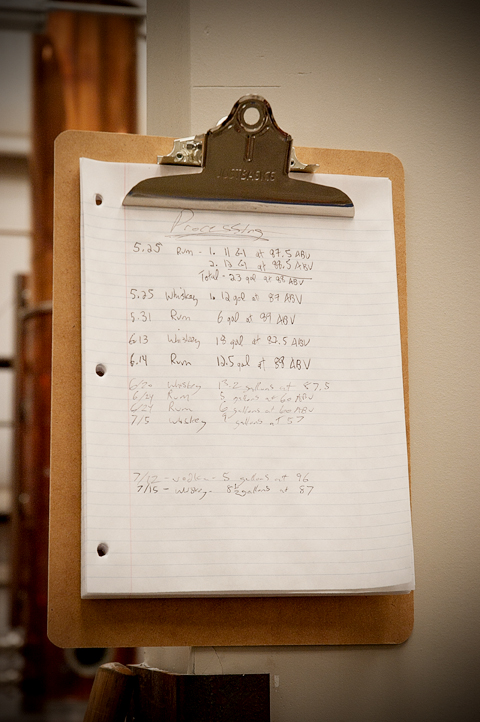 Processing
5.25 Rum - 1. 11 Gal at 87.5 ABV
2. 12 Gal at 88.5 ABV
Total - 23 gal at 88 ABV
5.25 Whiskey 1. 12 gal at 87 ABV
5.31 Rum 6 gal at 89 ABV
6.13 Whiskey 18 gal at 87.5 ABV
6.14 Rum 12.5 gal at 88 ABV
6/20 Whiskey gallons at 87.5
6/24 Rum gallons at 60 ABV
6/24 Rum 6 gallons at 60 ABV
7/5 Whiskey 9 gallons at 57
7/12 - vodka - 5 gallons at 96
7/15 - whiskey - 8½ gallons at 87